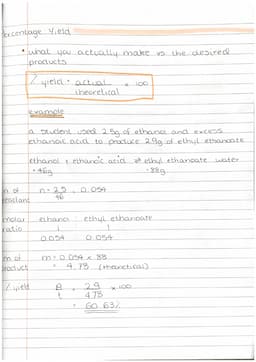 Percentage Yield
• what you actually make vs the desired
products
% yield = actual × 100
theoretical
Example
a student used 2.5g of ethanol and excess
ethanoic acid to produce 2.9g of ethyl ethanoate
ethanol + ethanoic acid ⇌ ethyl ethanoate water
= 46g = 88g
n of
reactant
n = 2.5 = 0.054
46
molar
ratio
ethanol : ethyl ethanoate
1 1
0.054 0.054
m of
product
m = 0.054 × 88
= 4.78 (theoretical)
% yield
2.9 × 100
4.78
= 60.63%